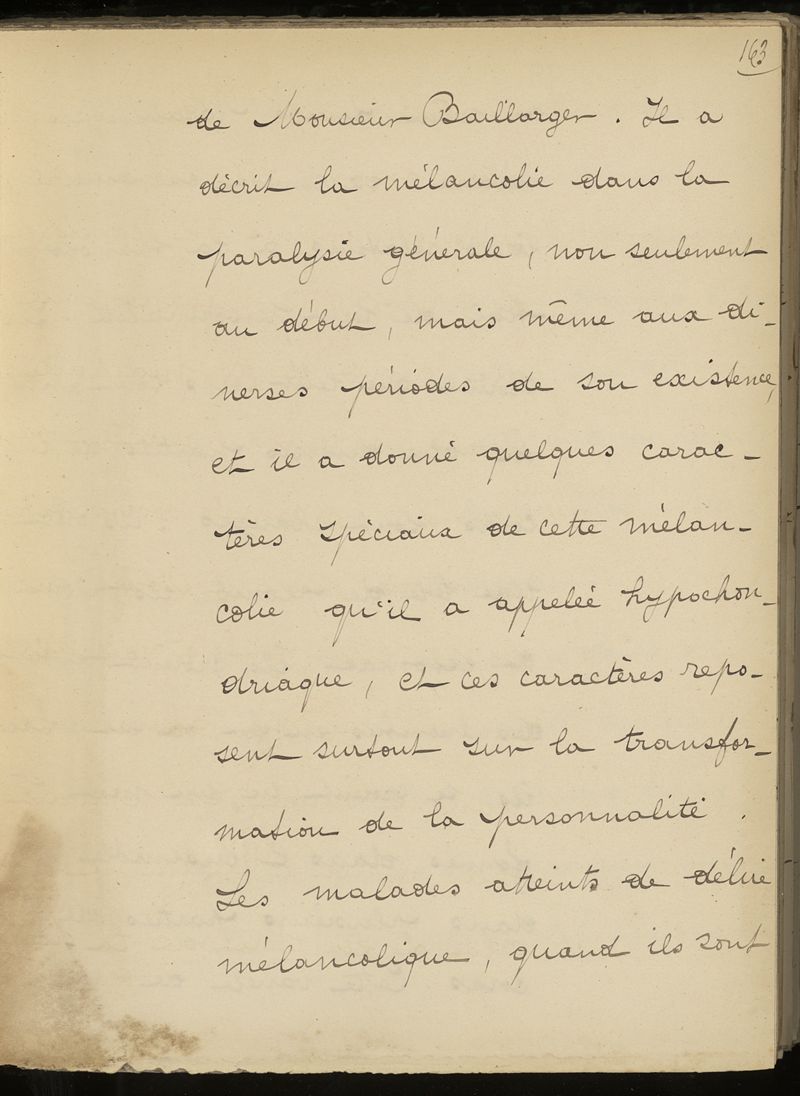 163
de Monsieur Baillarger. Il a
décrit la mélancolie dans la
paralysie générale, non seulement
au début, mais même aux di-
verses périodes de son existence,
et il a donné quelques carac-
tères spéciaux de cette mélan-
colie qu'il a appelée hypochon-
driaque, et ces caractères repo-
sent surtout sur la transfor-
mation de la personnalité.
Les malades atteints de délire
mélancolique, quand ils sont